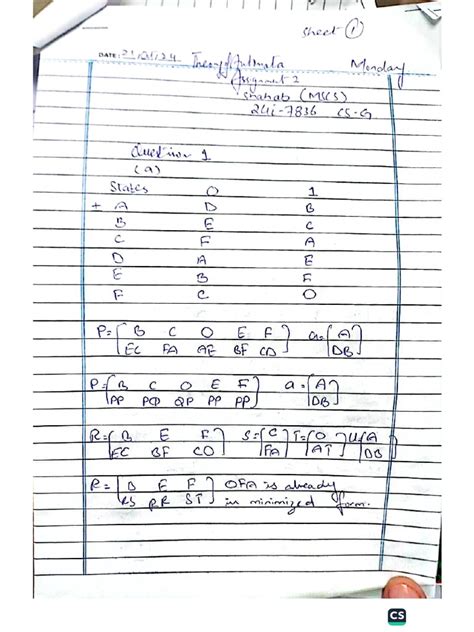 Sheet ①
DATE: Theory of Automata Monday
Assignment 2
Shahab (MSCS)
24i-7836 CS-G
Question 1
(a)
States 0 1
+ A D B
B E C
C F A
D A E
E B F
F C D
P= [B C D E F] Q= [A]
[EC FA AE BF CD] [DB]
P= [B C D E F] Q= [A]
[PP PQ QP PP PP] [DB]
R= [B E F] S= [C] T= [D] U= [A]
[EC BF CD] [FA] [DB]
R= [B E F] DFA is already
[RS RR ST] in minimized form.
CS